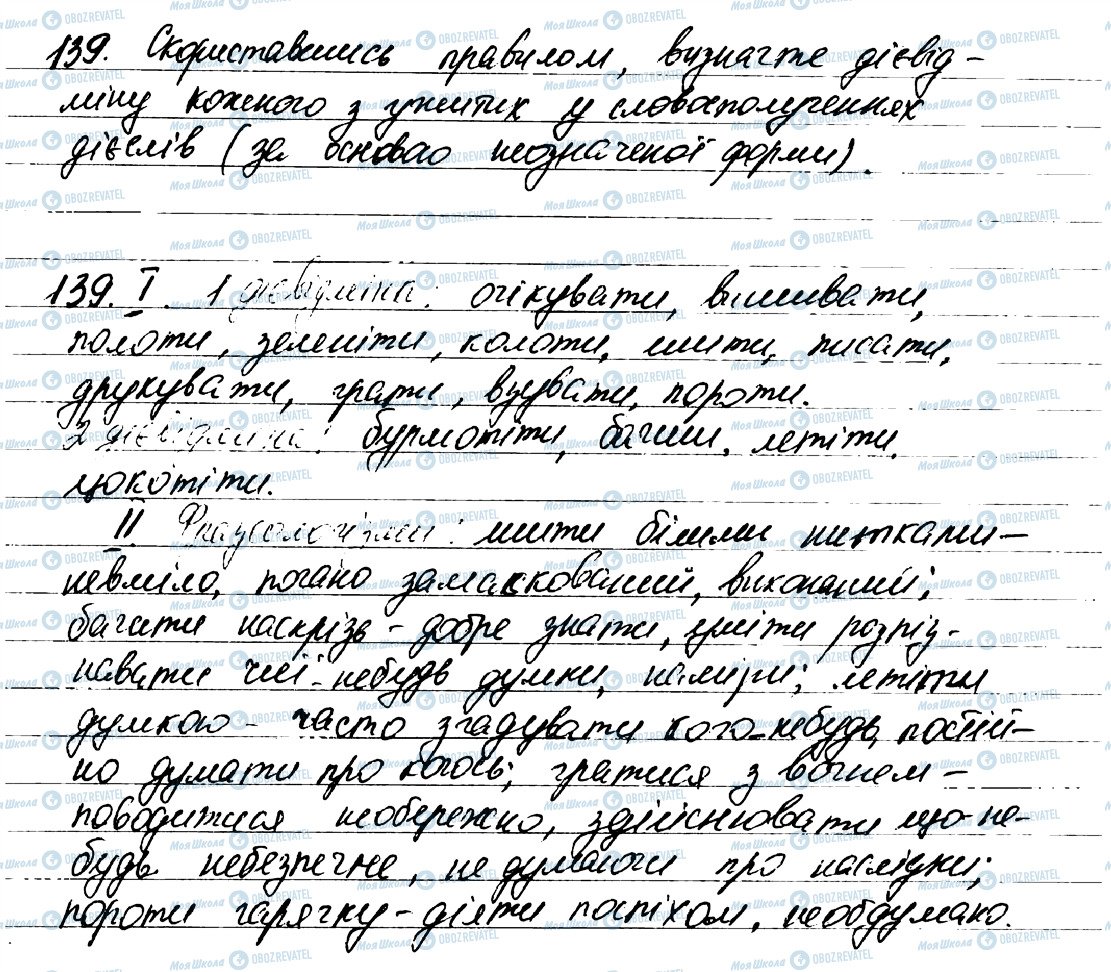 139. Скориставшись правилом, визначте дієвід-
міну кожного з ужитих у словосполученнях
дієслів (за основою неозначеної форми).
139. I. 1 дієвідміна: очікувати, вишивати,
полоти, зеленіти, колоти, шити, писати,
друкувати, грати, взувати, пороти.
2 дієвідміна: бурмотіти, бачити, летіти,
цокотіти.
II Фразеологізми: шити білими нитками -
невміло, погано замаскований, виконаний;
бачити наскрізь - добре знати, уміти розпіз-
навати чиї-небудь думки, наміри; летіти
думкою - часто згадувати кого-небудь, постій-
но думати про когось; гратися з вогнем -
поводитися необережно, здійснювати що-не-
будь небезпечне, не думаючи про наслідки;
пороти гарячку - діяти поспіхом, необдумано.